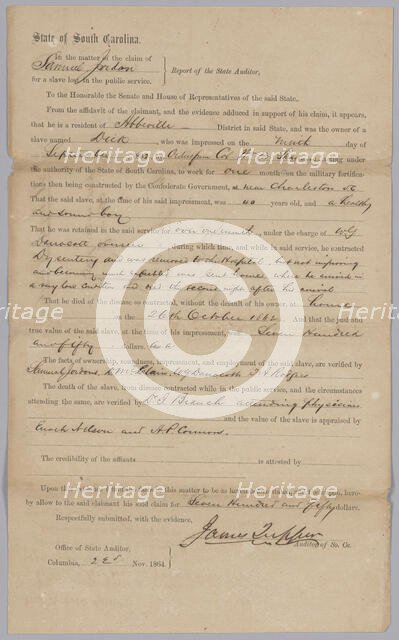 State of South Carolina.
In the matter of the claim of
Samuel Jordan
Report of the State Auditor,
for a slave lost in the public service.
To the Honorable the Senate and House of Representatives of the said State.
From the affidavit of the claimant, and the evidence adduced in support of his claim, it appears,
that he is a resident of Abbeville District in said State, and was the owner of a
slave named Dick who was impressed on the Ninth day of
September acting under
the authority of the State of South Carolina, to work for one month on the military fortifica-
tions then being constructed by the Confederate Government, at near Charleston
That the said slave, at the time of his said impressment, was 40 years old, and a healthy
and sound boy
That he was retained in the said service for over one month under the charge of W G
during which time, and while in the said service, he contracted
Dysentery and was removed to the Hospital, but not improving
and was sent home where he arrived in
a very low condition and died the second night after his arrival
That he died of the disease so contracted, without the default of his owner, at home
on the 26th October 1862 And that the just and
true value of the said slave, at the time of his impressment, was Seven Hundred
and fifty dollars.
The facts of ownership, soundness, impressment, and employment of the said slave, are verified by
Samuel Jordan, Rogers
The death of the slave, from disease contracted while in the public service, and the circumstances
attending the same, are verified by Dr. J Branch attending physician
and the value of the slave is appraised by
Enoch Nelson and A. P. Connors.
The credibility of the affiants is attested by
Upon this matter to be
by allow to the said claimant his said claim for Seven Hundred and fifty dollars.
Respectfully submitted, with the evidence,
James Tupper
Auditor of So. Ca.
Office of State Auditor,
Columbia, 22d Nov. 1864.
Heritage
Heritage
Heritage
Heritage
Heritage
Heritage
Heritage
Heritage